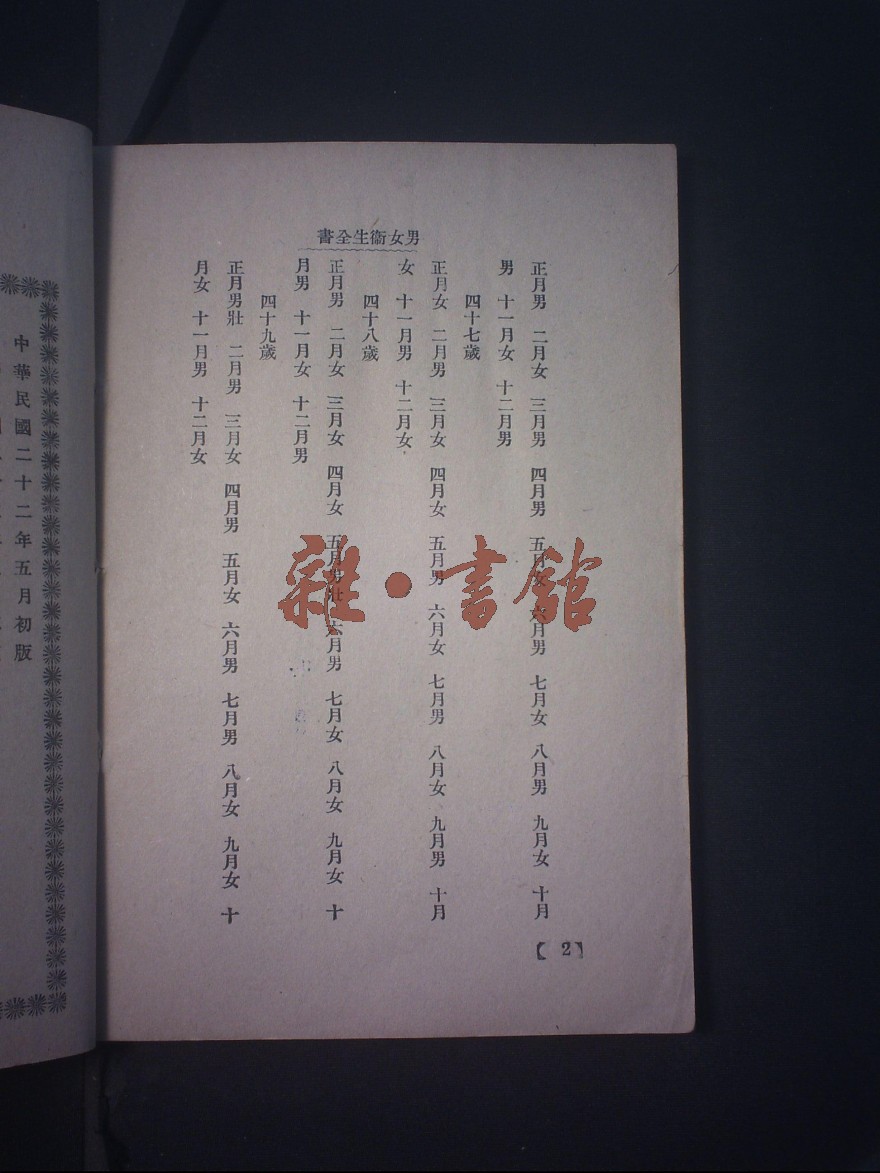 男女衞生全書
正月男 二月女 三月男 四月男 五月女 六月男 七月女 八月男 九月女 十月
男 十一月女 十二月男
四十七歲
正月女 二月男 三月女 四月女 五月男 六月女 七月男 八月女 九月男 十月
女 十一月男 十二月女
四十八歲
正月男 二月女 三月女 四月女 五月男壯 六月男 七月女 八月女 九月女 十
月男 十一月女 十二月男
四十九歲
正月男壯 二月男 三月女 四月男 五月女 六月男 七月男 八月女 九月女 十
月女 十一月男 十二月女
【2】
雜·書館
中華民國二十二年五月初版